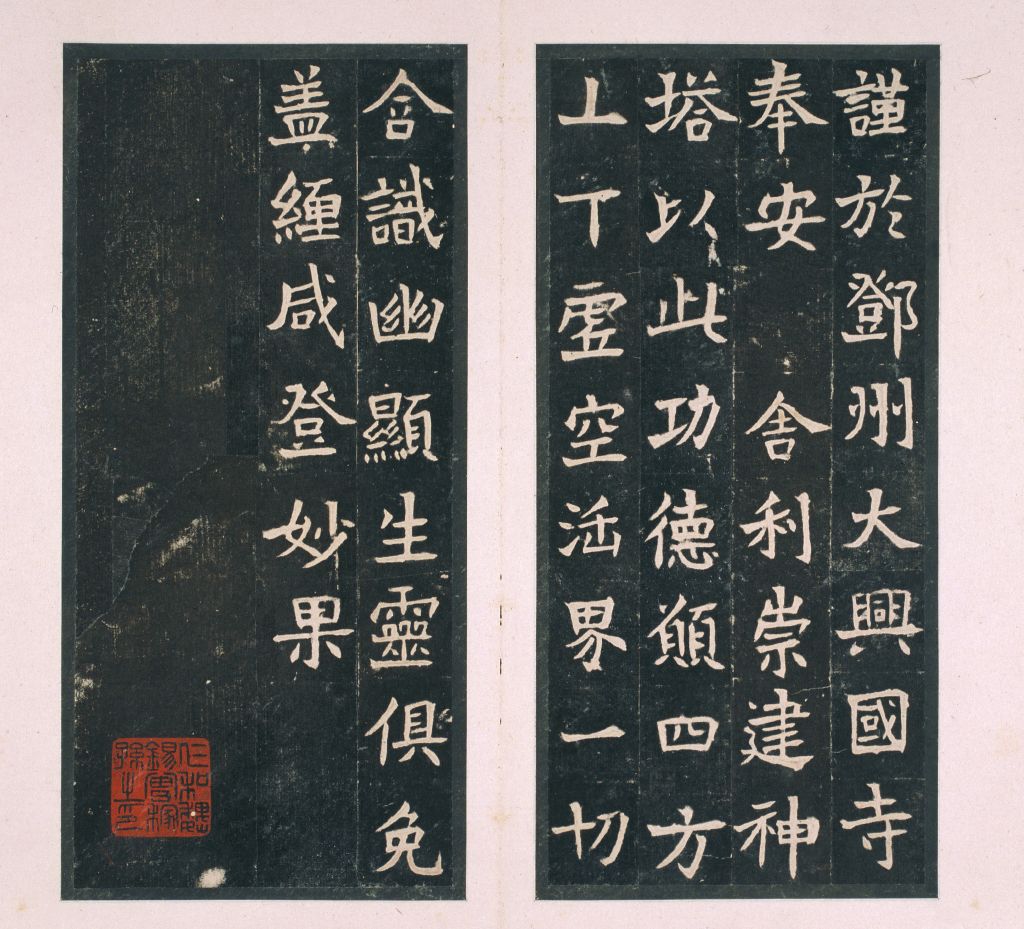 謹於鄧州大興國寺
奉安 舍利崇建神
塔以此功德願四方
上下虛空法界一切
含識幽顯生靈俱免
盖纏咸登妙果
仁和魏
錫曾稼
孫之印